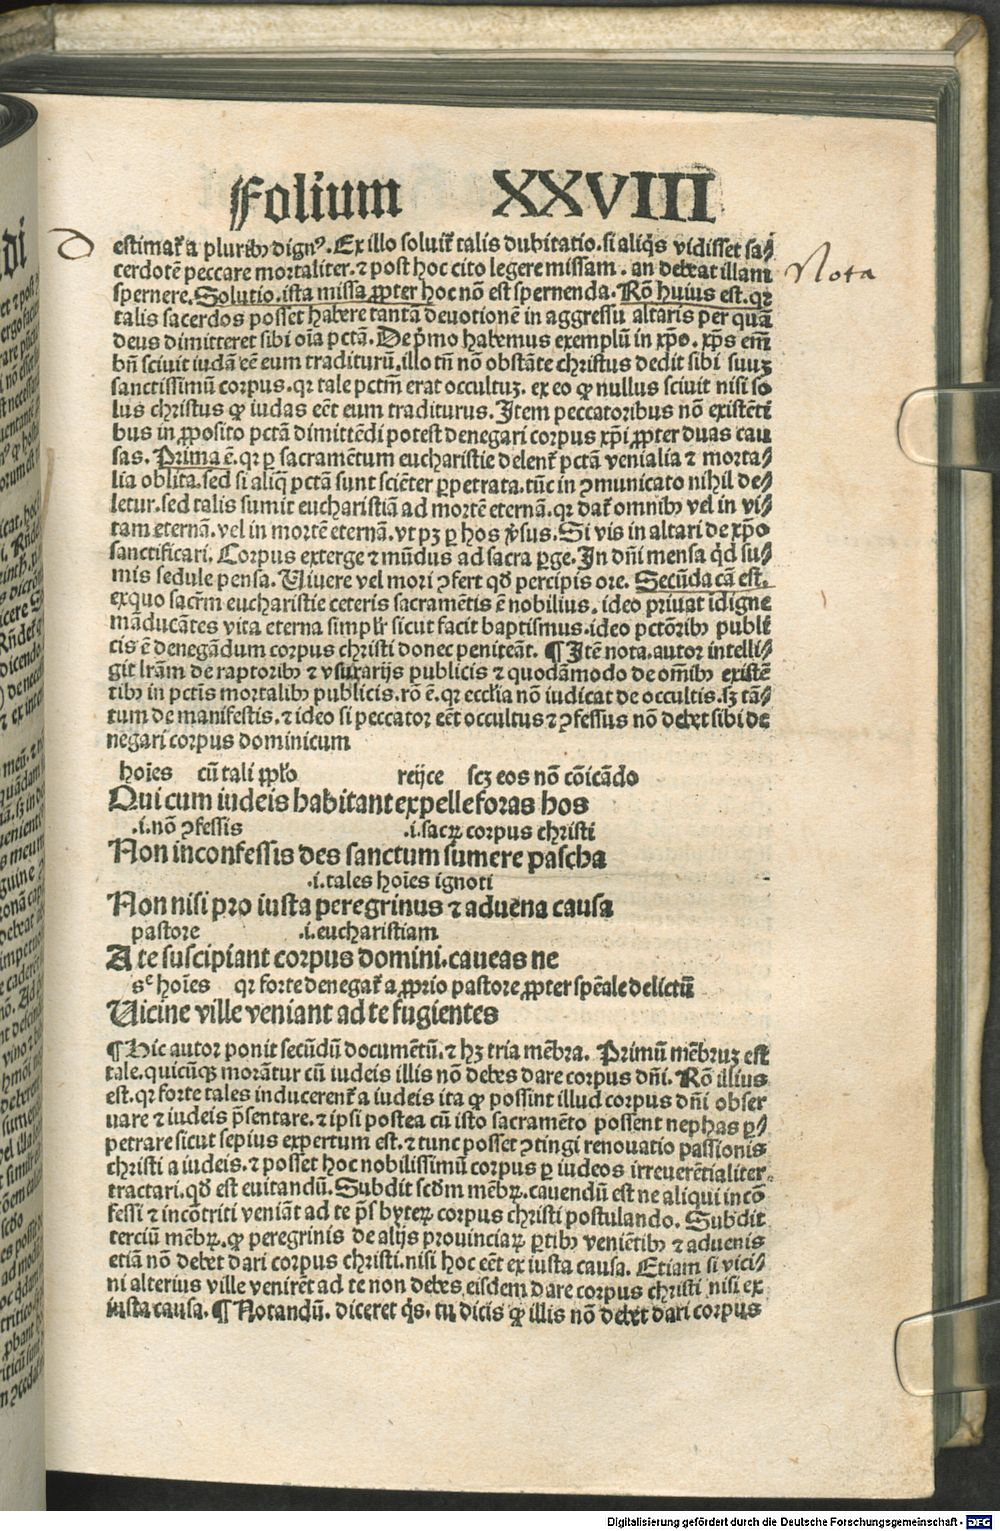 Folium XXVIII
estimat᷒ a plurib⁹ dign⁹. Ex illo soluit᷒ talis dubitatio. si aliq̄s vidisset sa⸗
cerdotē peccare mortaliter. ⁊ post hoc cito legere missam. an debeat illam
Nota
spernere. Solutio. ista missa ꝓpter hoc nō est spernenda. Rō huius est. qꝛ
talis sacerdos posset habere tantā deuotionē in aggressu altaris per quā
deus dimitteret sibi oīa pctā. De p̄mo habemus exemplū in xp̄o. xp̄s em̄
bn̄ sciuit iudā eē eum traditurū. illo tn̄ nō obstāte christus dedit sibi suuꝫ
sanctissimū corpus. qꝛ tale pctm̄ erat occultuꝫ. ex eo ꝙ nullus sciuit nisi so
lus christus ꝙ iudas eēt eum traditurus. Item peccatoribus nō existēti
bus in ꝓposito pctā dimittēdi potest denegari corpus xp̄i ꝓpter duas cau
sas. Prima ē. qꝛ ꝑ sacramētum eucharistie delent᷒ pctā venialia ⁊ morta⸗
lia oblita. sed si aliq̄ pctā sunt sciēter ꝑpetrata. tūc in ꝯmunicato nihil de⸗
letur. sed talis sumit eucharistiā ad mortē eternā. qꝛ dat᷒ omnibꝰ vel in vi⸗
tam eternā. vel in mortē eternā. vt pꝫ ꝑ hos v̄sus. Si vis in altari de xp̄o
sanctificari. Corpus exterge ⁊ mūdus ad sacra ꝑge. In dn̄i mensa q̇d su⸗
mis sedule pensa. Viuere vel mori ꝯfert qd̄ percipis ore. Secūda cā est.
exquo sacr̄m eucharistie ceteris sacramētis ē nobilius. ideo priuat īdigne
māducātes vita eterna simpl᷒r sicut facit baptismus. ideo pctōribꝰ publi
cis ē denegādum corpus christi donec peniteāt. ¶ Itē nota. autor intelli⸗
git lr̄am de raptoribꝰ ⁊ vsurarijs publicis ⁊ quodāmodo de om̄ibꝰ existē
tibꝰ in pctīs mortalibꝰ publicis. rō ē. qꝛ eccl̄ia nō iudicat de occultis. sꝫ tā⸗
tum de manifestis. ⁊ ideo si peccator eēt occultus ⁊ ꝯfessus nō debet sibi de
negari corpus dominicum
hoīes cū tali ppl̄o reijce scꝫ eos nō cōicādo
Qui cum iudeis habitant expelle foras hos
.i. nō ꝯfessis .i. sacꝝ corpus christi
Non inconfessis des sanctum sumere pascha
.i. tales hoīes ignoti
Non nisi pro iusta peregrinus ⁊ aduena causa
pastore .i. eucharistiam
A te suscipiant corpus domini. caueas ne
sᶜ hoīes qꝛ forte denegat᷒ a ꝓprio pastore ꝓpter spēale delictū
Vicine ville veniant ad te fugientes
¶ Hic autor ponit secūdū documētū. ⁊ hꝫ tria mēbra. Primū mēbruꝫ est
tale. quicūqꝫ morātur cū iudeis illis nō debes dare corpus dn̄i. Rō illius
est. qꝛ forte tales inducerent᷒ a iudeis ita ꝙ possint illud corpus dn̄i obser
uare ⁊ iudeis p̄sentare. ⁊ ipsi postea cū isto sacramēto possent nephas ꝑ⸗
petrare sicut sepius expertum est. ⁊ tunc posset ꝯtingi renouatio passionis
christi a iudeis. ⁊ posset hoc nobilissimū corpus ꝑ iudeos irreuerētialiter
tractari. qd̄ est euitandū. Subdit scd̄m mēbꝝ. cauendū est ne aliqui incō
fessi ⁊ incōtriti veniāt ad te p̄sbyteꝝ corpus christi postulando. Subdit
terciū mēbꝝ. ꝙ peregrinis de alijs prouinciaꝝ ꝑtibꝰ veniētibꝰ ⁊ aduenis
etiā nō debet dari corpus christi. nisi hoc eēt ex iusta causa. Etiam si vici⸗
ni alterius ville venirēt ad te non debes eisdem dare corpus christi nisi ex
iusta causa. ¶ Notandū. diceret q̇s. tu dicis ꝙ illis nō debet dari corpus
Digitalisierung gefördert durch die Deutsche Forschungsgemeinschaft - DFG